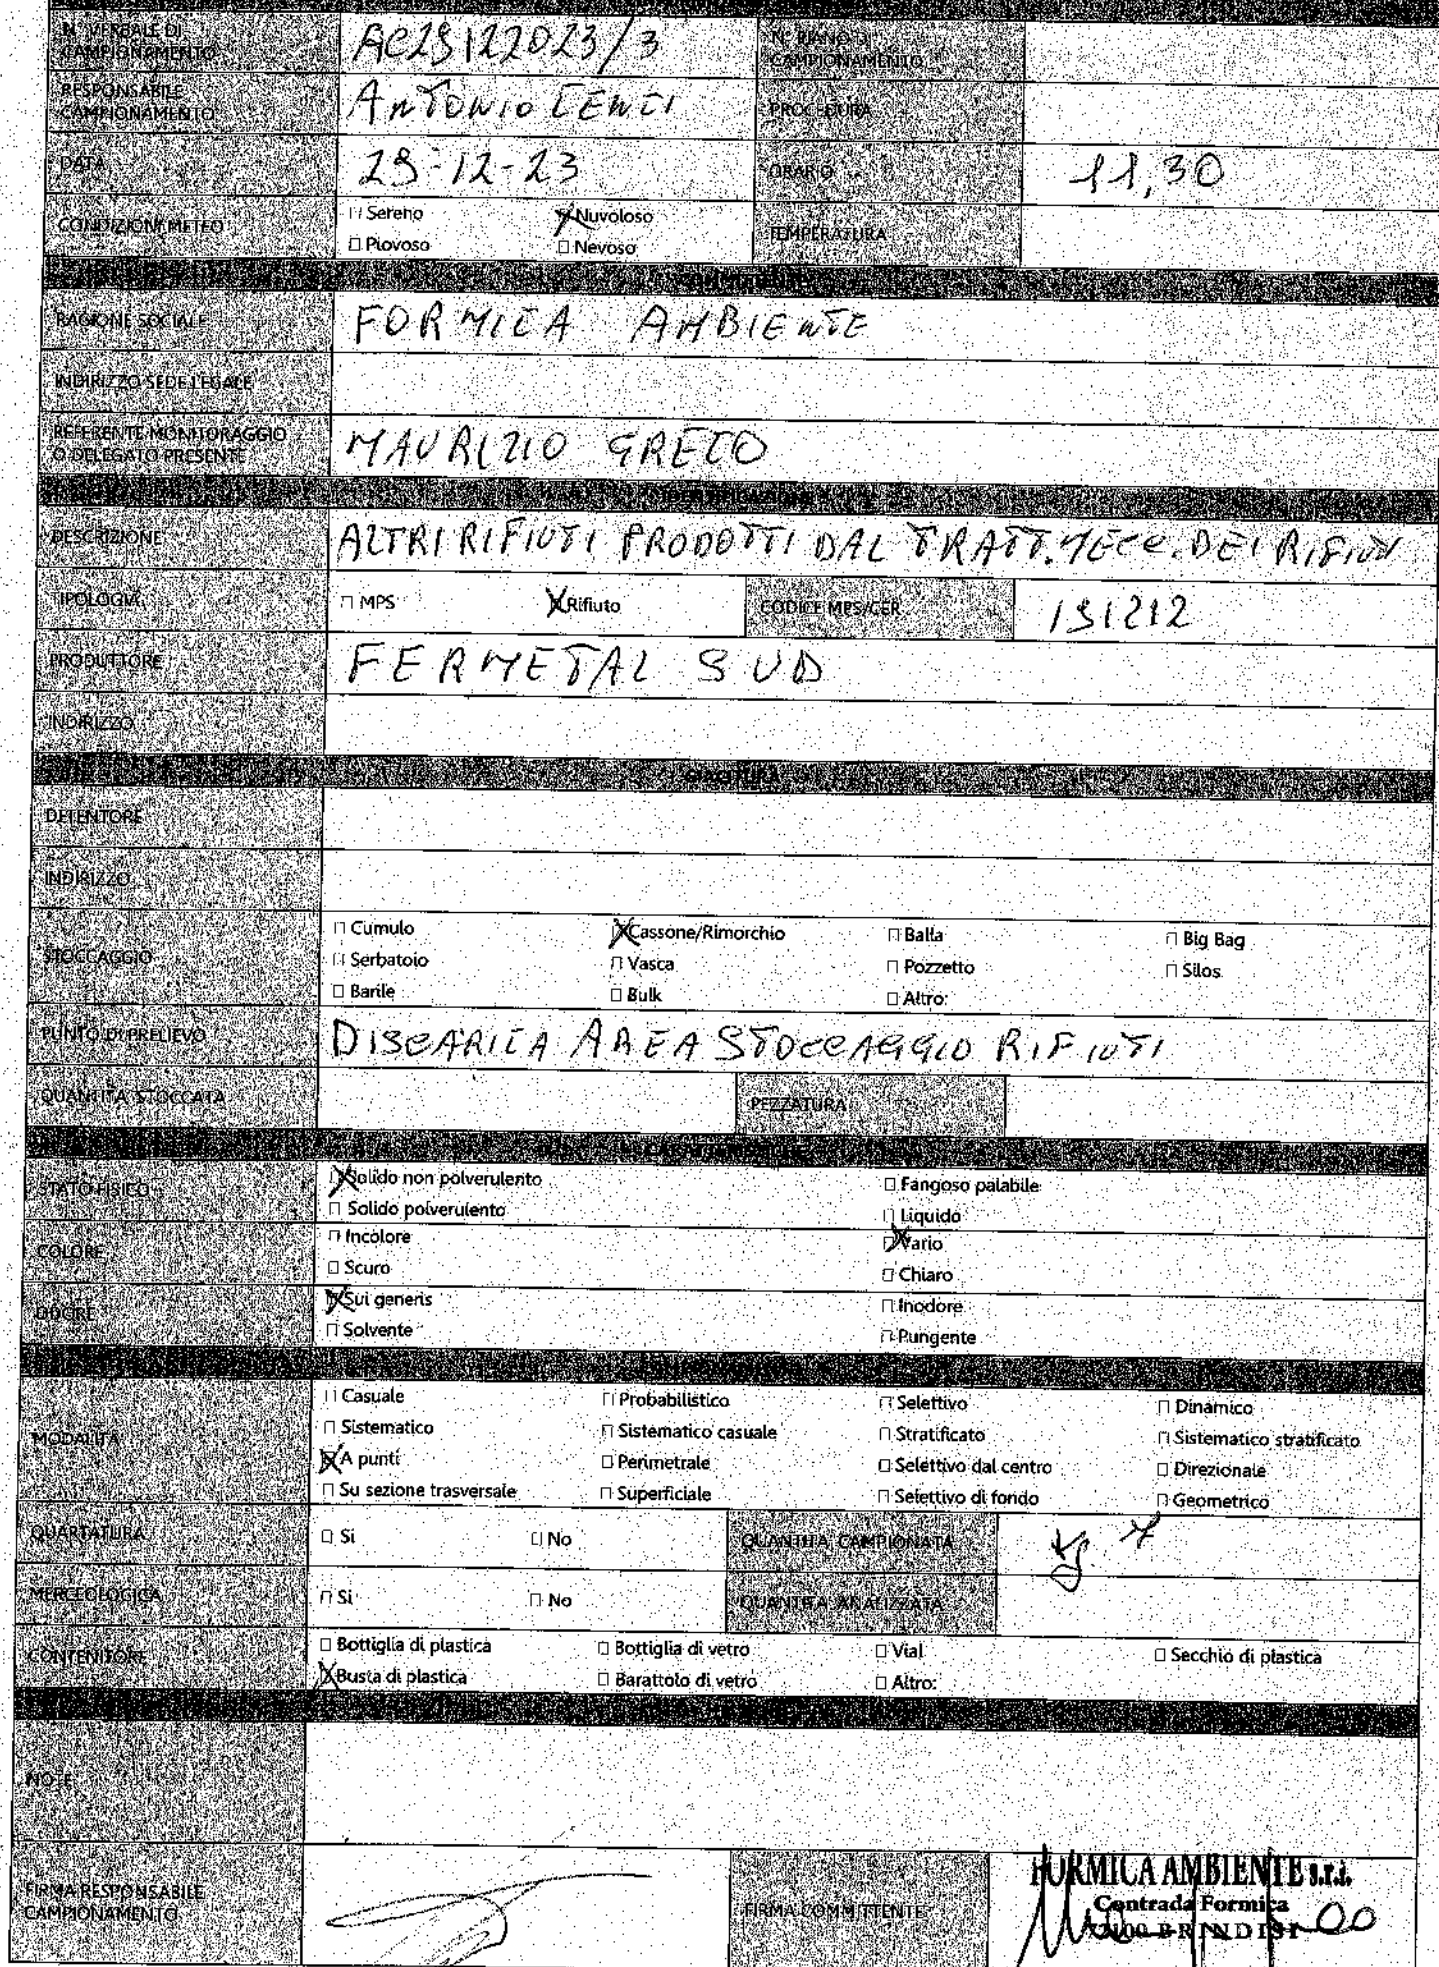 N° VERBALE DI CAMPIONAMENTO AC29122023/3 N° PIANO DI CAMPIONAMENTO
RESPONSABILE CAMPIONAMENTO ANTONIO CENCI PROCEDURA
DATA 29-12-23 ORARIO 11,30
CONDIZIONI METEO □ Sereno X Nuvoloso TEMPERATURA
□ Piovoso □ Nevoso
RAGIONE SOCIALE FORMICA AMBIENTE
INDIRIZZO SEDE LEGALE
REFERENTE MONITORAGGIO O DELEGATO PRESENTE MAURIZIO GRECO
DESCRIZIONE ALTRI RIFIUTI PRODOTTI DAL TRATT. MECC. DEI RIFIUTI
TIPOLOGIA □ MPS X Rifiuto CODICE MPS/CER 191212
PRODUTTORE FERMETAL SUD
INDIRIZZO
DETENTORE
INDIRIZZO
STOCCAGGIO □ Cumulo X Cassone/Rimorchio □ Balla □ Big Bag
□ Serbatoio □ Vasca □ Pozzetto □ Silos
□ Barile □ Bulk □ Altro:
PUNTO DI PRELIEVO DISCARICA AREA STOCCAGGIO RIFIUTI
QUANTITÀ STOCCATA PEZZATURA
STATO FISICO X Solido non polverulento □ Fangoso palabile
□ Solido polverulento □ Liquido
COLORE □ Incolore X Vario
□ Scuro □ Chiaro
ODORE X Sui generis □ Inodore
□ Solvente □ Pungente
MODALITÀ □ Casuale □ Probabilistico □ Selettivo □ Dinamico
□ Sistematico □ Sistematico casuale □ Stratificato □ Sistematico stratificato
X A punti □ Perimetrale □ Selettivo dal centro □ Direzionale
□ Su sezione trasversale □ Superficiale □ Selettivo di fondo □ Geometrico
QUARTATURA □ Si □ No QUANTITÀ CAMPIONATA Kg.
MERCEOLOGICA □ Si □ No QUANTITÀ ANALIZZATA
CONTENITORE □ Bottiglia di plastica □ Bottiglia di vetro □ Vial □ Secchio di plastica
X Busta di plastica □ Barattolo di vetro □ Altro:
NOTE
FIRMA RESPONSABILE CAMPIONAMENTO FIRMA COMMITTENTE
FORMICA AMBIENTE s.r.l.
Contrada Formica
72100 BRINDISI